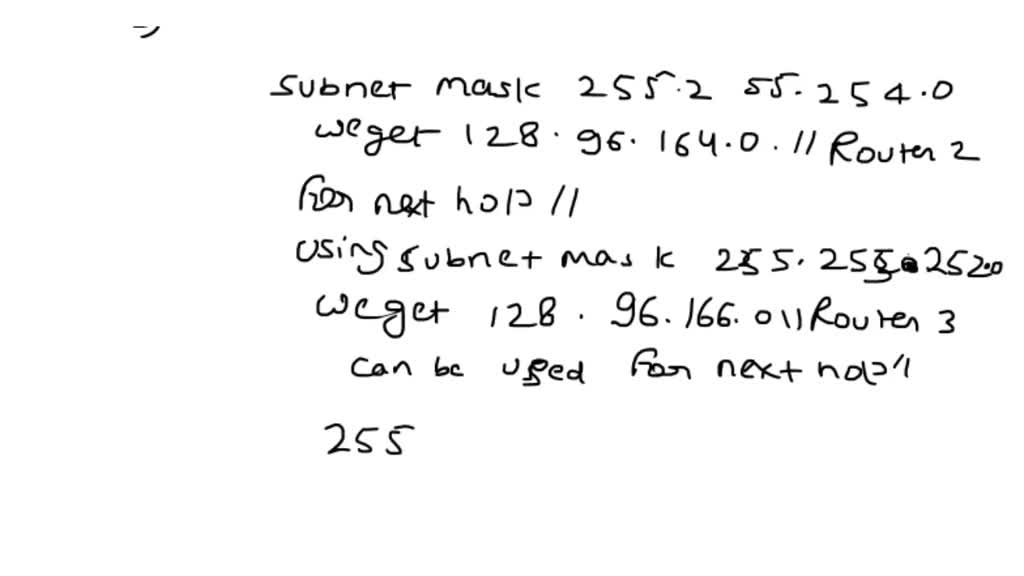 subnet mask 255.2 55.254.0
we get 128.96.164.0.// Router 2
For next hop //
using subnet mask 255.255.252.0
we get 128.96.166.0 // Router 3
can be used for next hop //
255